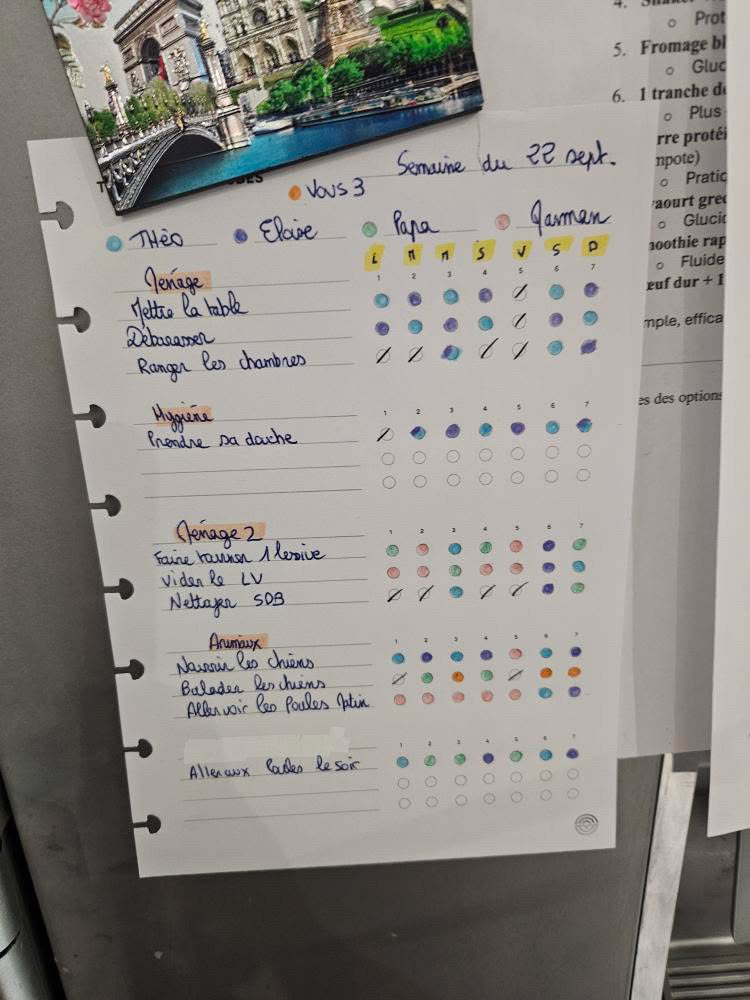 Semaine du 22 sept.
Vous 3
THéo
Eloïse
Papa
Maman
L M M S V S D
Ménage
1 2 3 4 5 6 7
Mettre la table
Débarasser
Ranger les chambres
Hygiène
1 2 3 4 5 6 7
Prendre sa douche
Ménage 2
1 2 3 4 5 6 7
Faire tourner 1 lessive
Vider le LV
Nettoyer SDB
Animaux
1 2 3 4 5 6 7
Nourrir les chiens
Balader les chiens
Aller voir les Poules Matin
1 2 3 4 5 6 7
Aller aux Poules le soir
4.
Prot
5. Fromage bl
Gluc
6. 1 tranche d
Plus
rre protéi
mpote)
Pratic
yaourt grec
Glucid
moothie rap
Fluide
œuf dur + 1
mple, effica
es des options